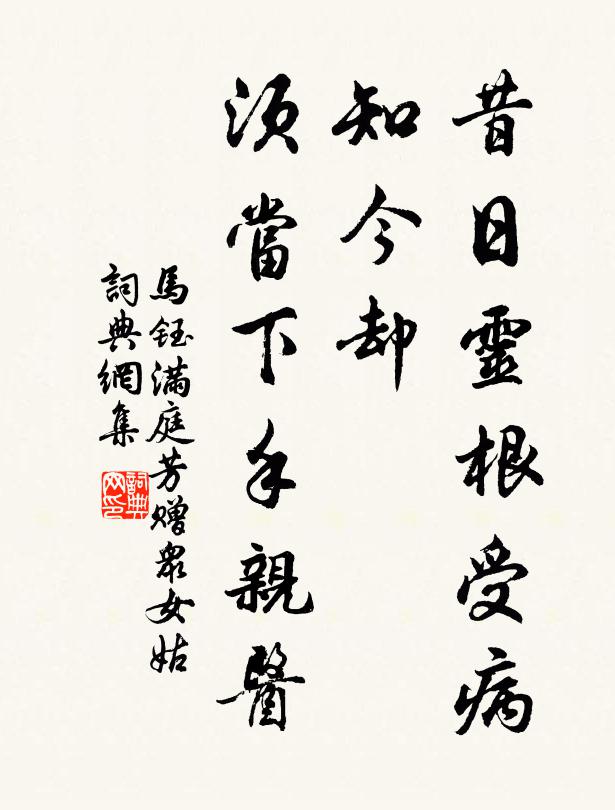 昔日靈根受病
知今却
須當下手親醫
馬鈺滿庭芳贈眾女姑
詞典網集
詞典网印